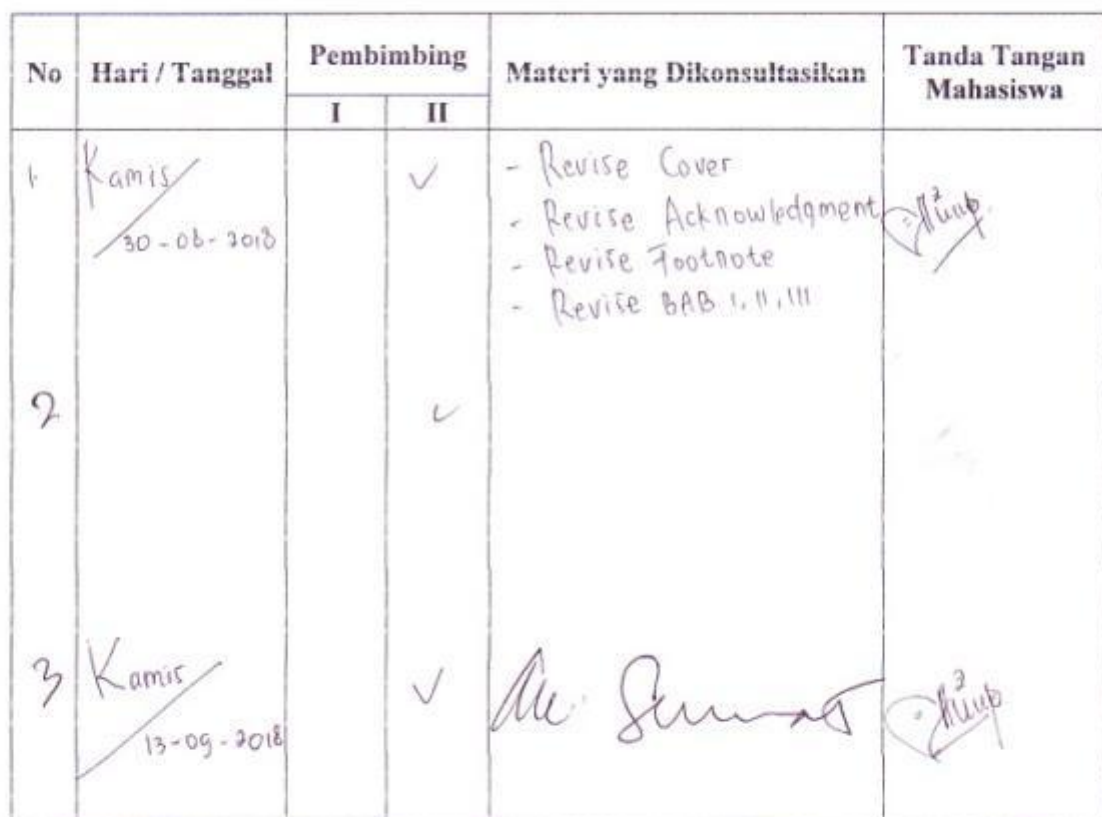 No
Hari / Tanggal
Pembimbing
Materi yang Dikonsultasikan
Tanda Tangan
Mahasiswa
I
II
1.
Kamis
30-08-2018
✓
- Revise Cover
- Revise Acknowledgment
- Revise Footnote
- Revise BAB I, II, III
2
✓
3
Kamis
13-09-2018
✓
Acc. Seminar